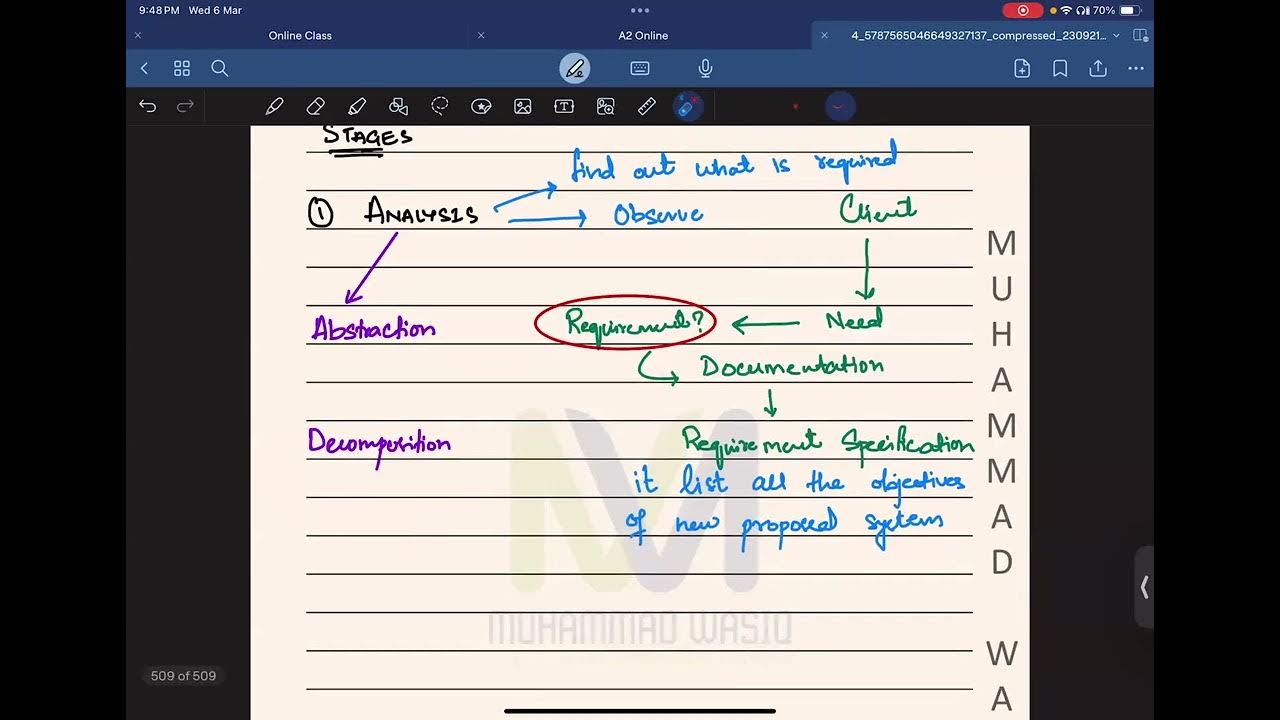 9:48 PM Wed 6 Mar
70%
Online Class
A2 Online
4_5787565046649327137_compressed_230921...
STAGES
find out what is required
① ANALYSIS
Observe
Client
Abstraction
Requirement?
Need
Documentation
Decomposition
Requirement Specification
it list all the objectives
of new proposed system
MUHAMMAD WASIQ
509 of 509
MUHAMMAD WA